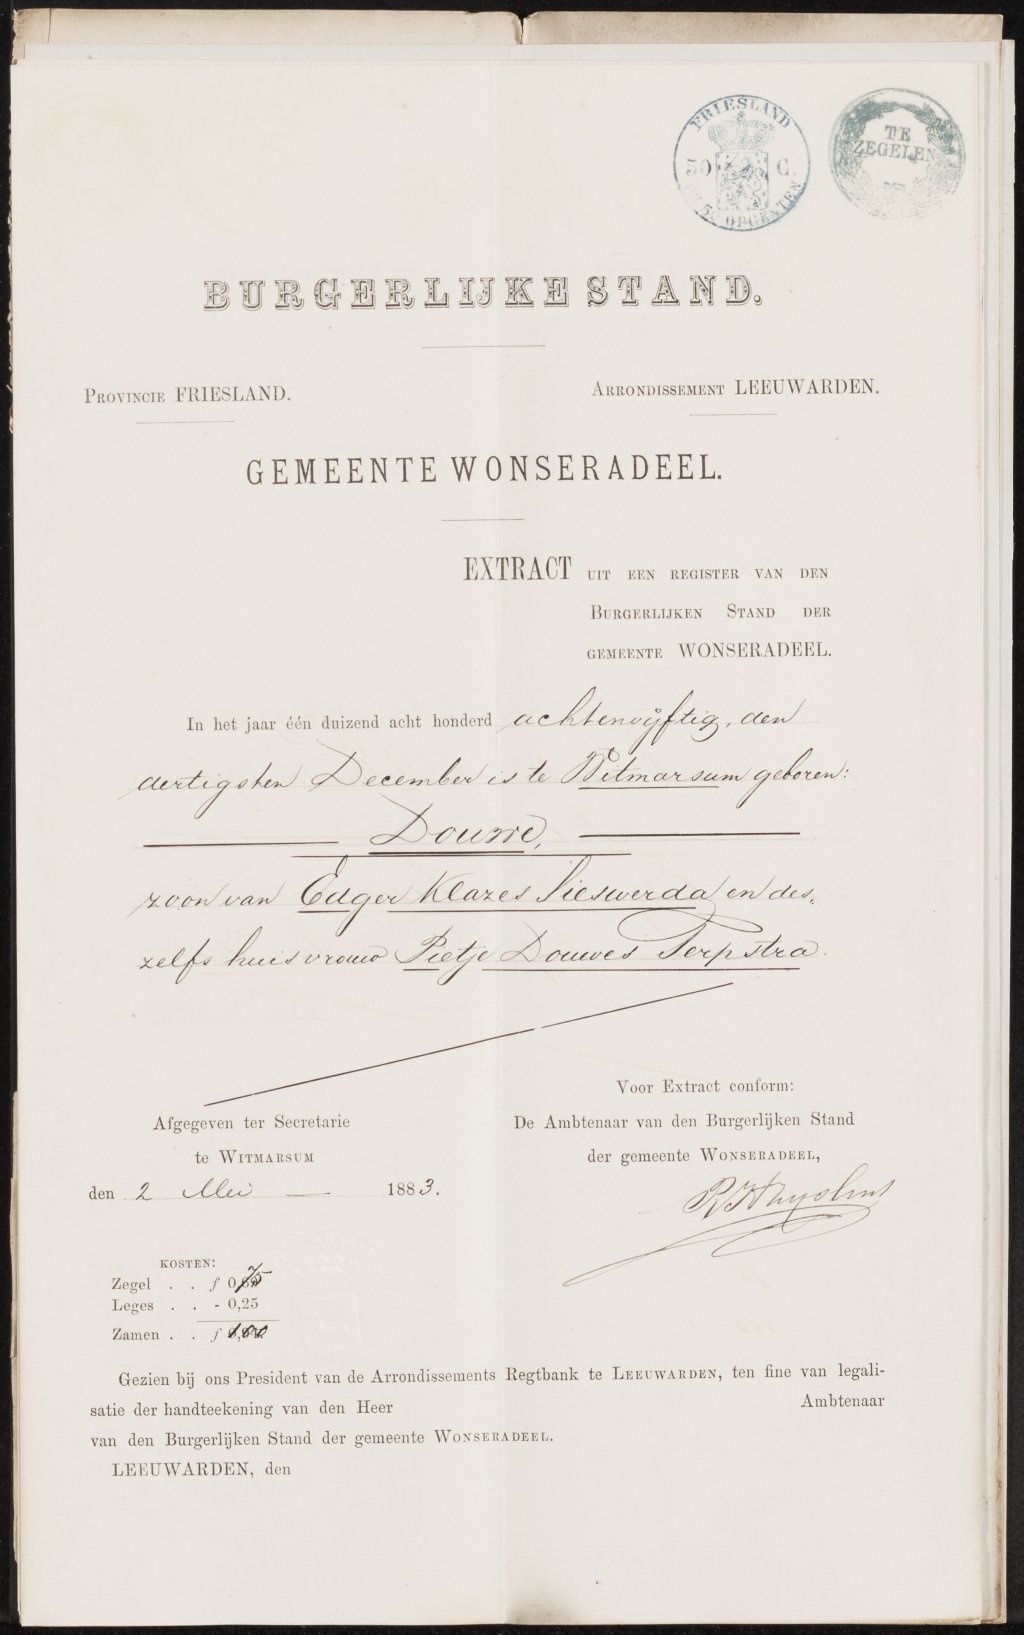 FRIESLAND
50 C.
OPCENTEN
TE
ZEGELEN
BURGERLIJKE STAND.
PROVINCIE FRIESLAND.
ARRONDISSEMENT LEEUWARDEN.
GEMEENTE WONSERADEEL.
EXTRACT UIT EEN REGISTER VAN DEN
BURGERLIJKEN STAND DER
GEMEENTE WONSERADEEL.
In het jaar één duizend acht honderd achtenvijftig, den
dertigsten December is te Witmarsum geboren:
Douwe,
zoon van Edger Klazes Sieswerda en des„
zelfs huisvrouw Pietje Douwes Terpstra.
Voor Extract conform:
Afgegeven ter Secretarie
De Ambtenaar van den Burgerlijken Stand
te WITMARSUM
der gemeente WONSERADEEL,
den 2 Mei 1883.
KOSTEN:
Zegel . . f 0,75
Leges . . - 0,25
Zamen . . f 1,00
Gezien bij ons President van de Arrondissements Regtbank te LEEUWARDEN, ten fine van legali-
satie der handteekening van den Heer Ambtenaar
van den Burgerlijken Stand der gemeente WONSERADEEL.
LEEUWARDEN, den